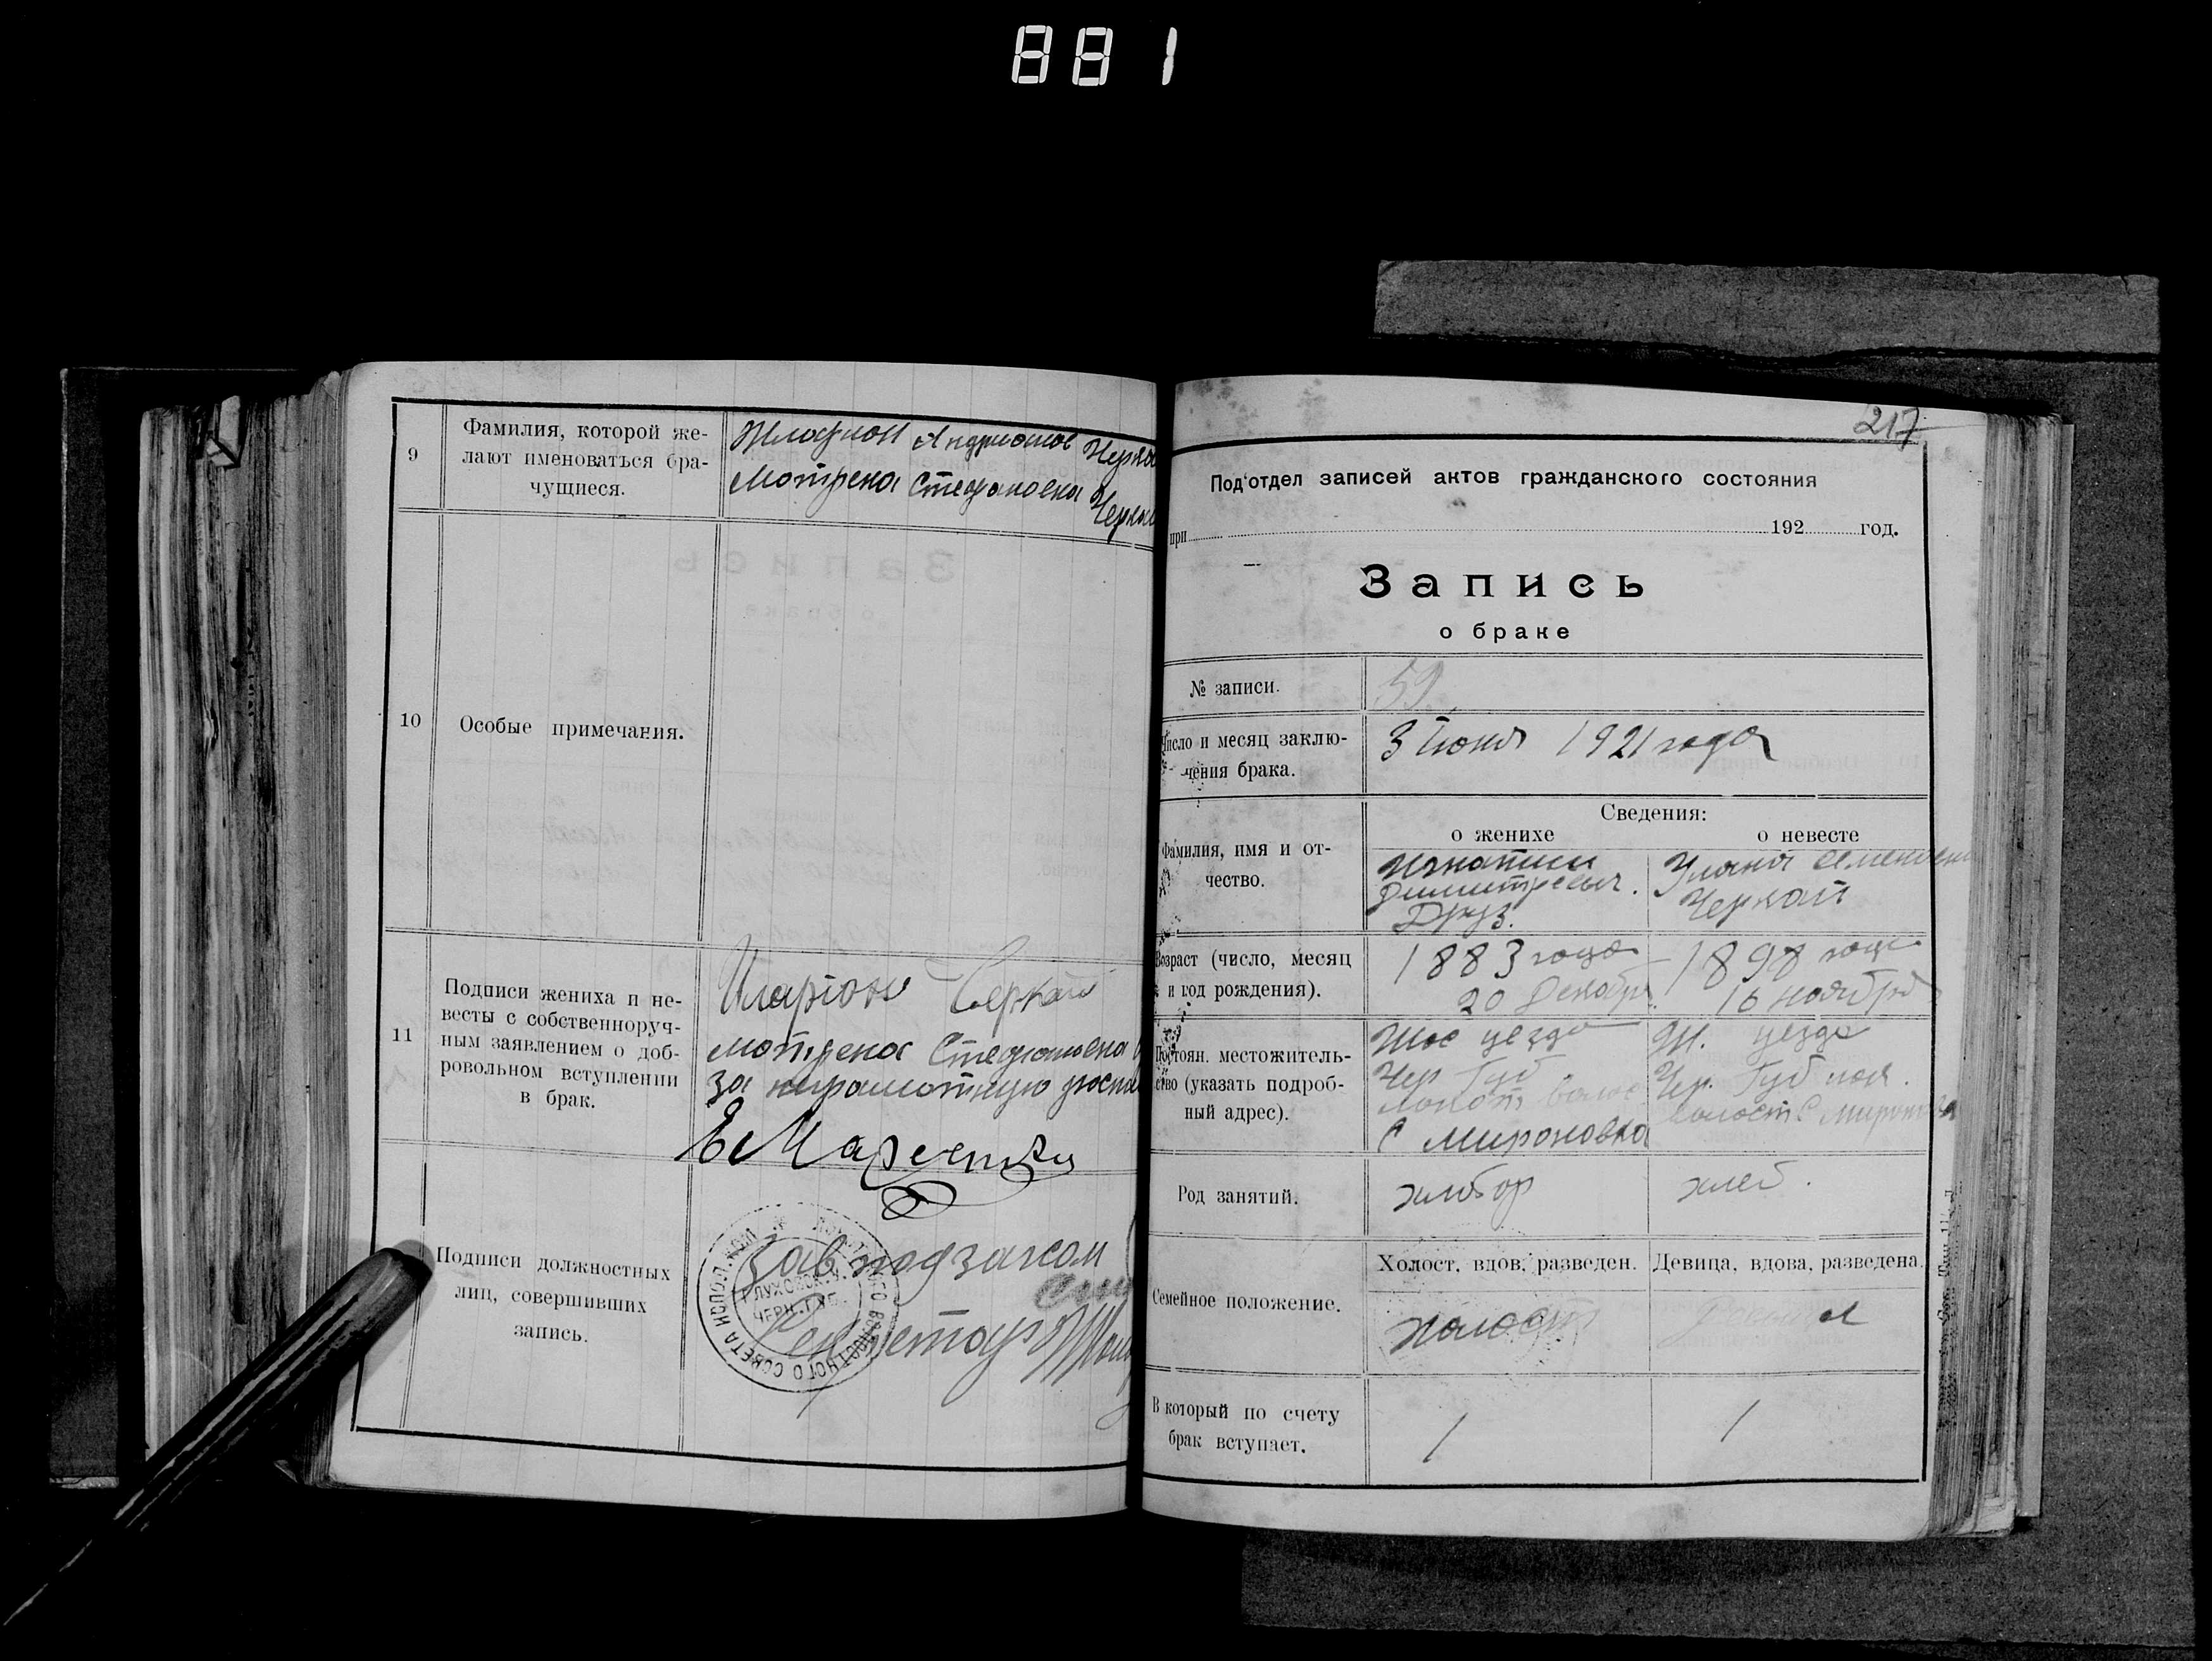 881
9
Фамилия, которой же-
лают именоваться бра-
чущиеся.
Андрианов
Мотрена Стефановна
10
Особые примечания.
11
Подписи жениха и не-
весты с собственноруч-
ным заявлением о доб-
ровольном вступлении
в брак.
Иларіон Черкай
мотрена Стефановна
за неграмотную
Подписи должностных
лиц, совершивших
запись.
Зав подзагсом
ВОЛОСТНОГО СОВЕТА ИСПОЛ.КОМ
ГЛУХОВСК. У.
ЧЕРН.ГУБ.
217
Подотдел записей актов гражданского состояния
при 192 год.
Запись
о браке
№ записи.
59
Число и месяц заклю-
чения брака.
3 Июня 1921 года
Сведения:
о женихе
о невесте
Фамилия, имя и от-
чество.
Игнатий
Димитревич.
Друз.
Уляна Семеновна
Черкай
Возраст (число, месяц
и год рождения).
1883 года
20 Декабря
1898 года
16 ноября
Постоян. местожитель-
ство (указать подроб-
ный адрес).
уезда
Чер Губ
С Мироновка
уезда
Чер. Губ
волост С
Род занятий.
хлебор
хлеб.
Семейное положение.
Холост, вдов, разведен.
Девица, вдова, разведена.
холост
В который по счету
брак вступает.
1
1